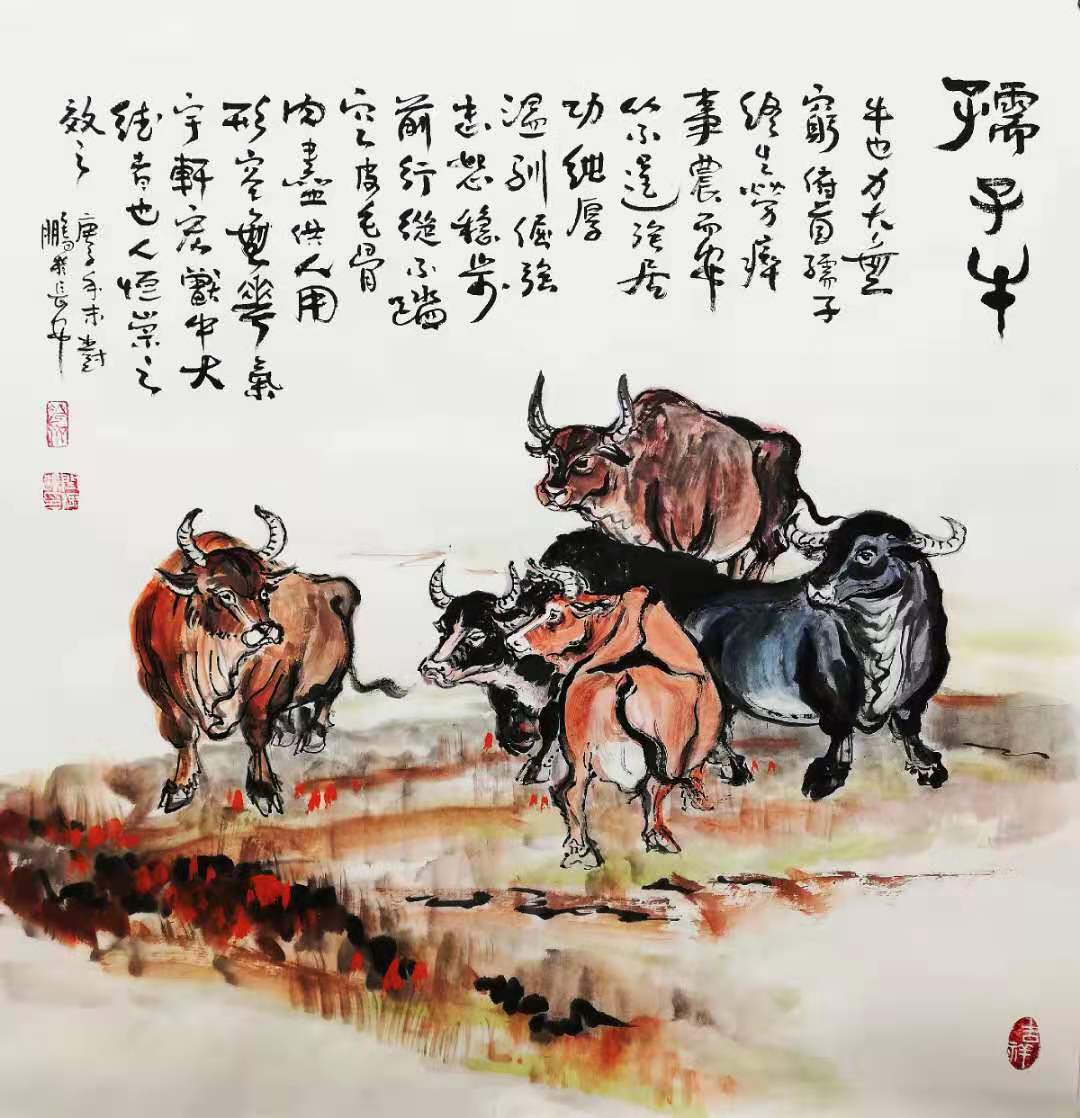 孺子牛
牛也力大無
窮俯首孺子
終生勞瘁
事農而
不逞強居
功純厚
溫馴倔強
忠恕穩步
前行從不踏
空皮毛骨
肉盡供人用
形容無華氣
宇軒宏獸中大
德者也人恆崇之
效之
庚子年末
鵬於長安
吉祥